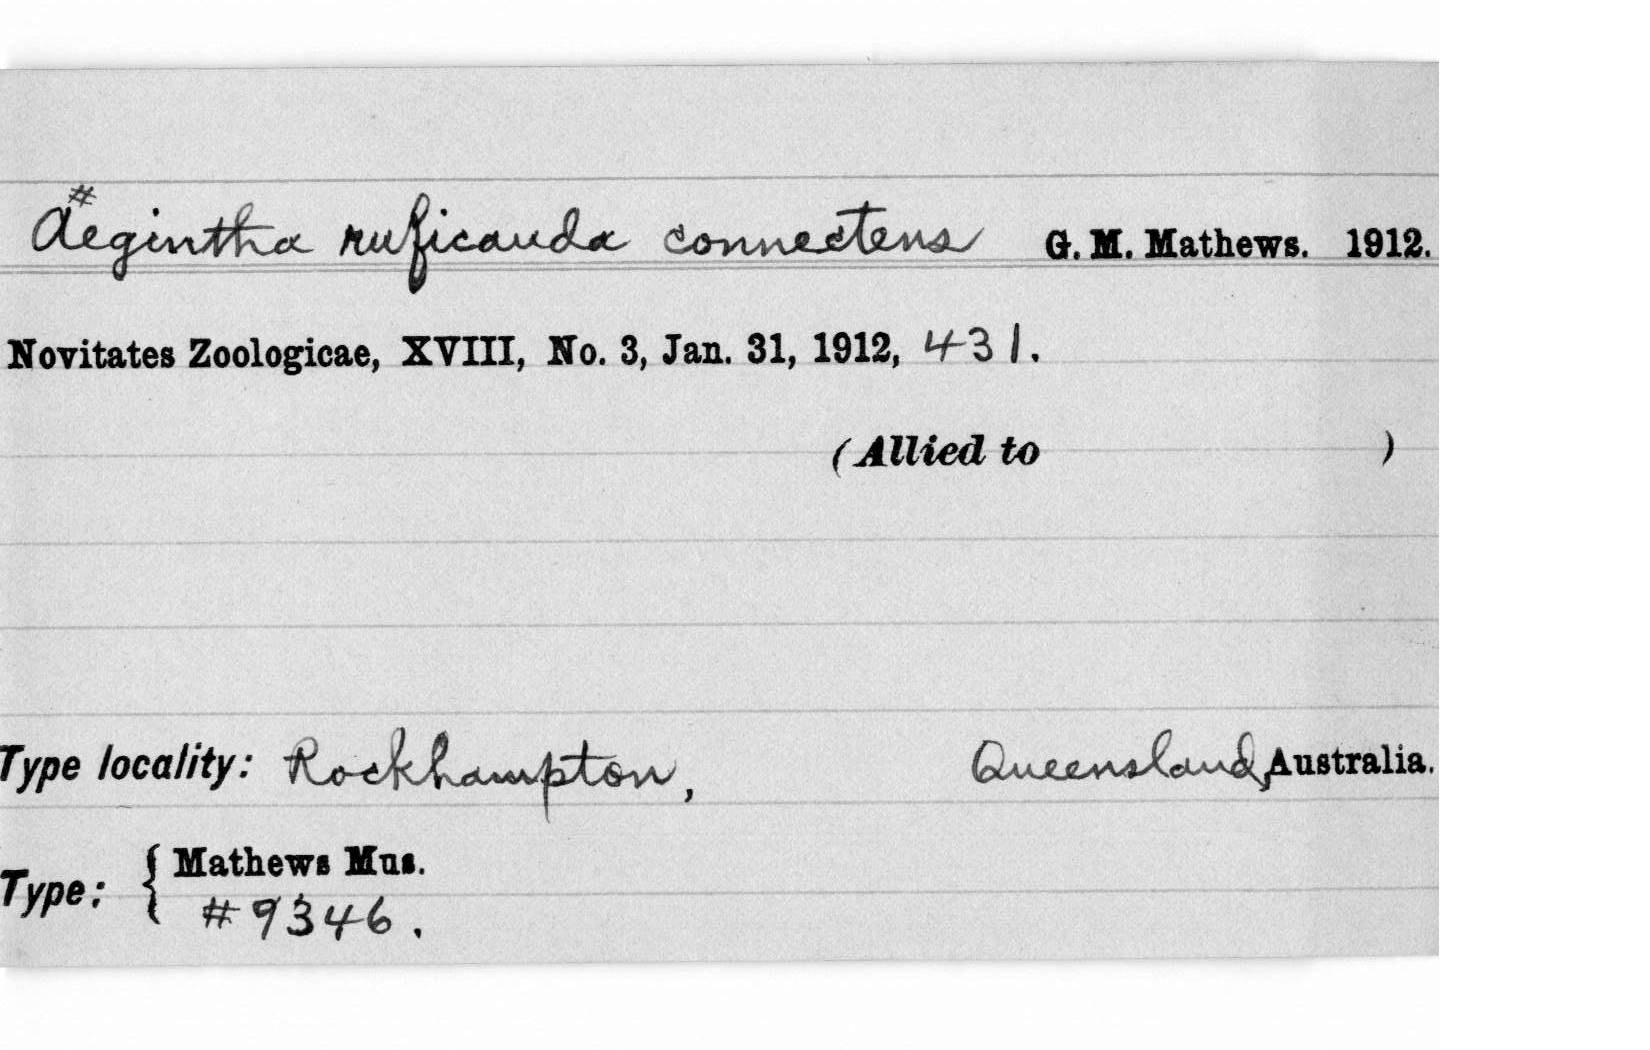 #
Aegintha ruficauda connectens G. M. Mathews. 1912.
Novitates Zoologicae, XVIII, No. 3, Jan. 31, 1912, 431.
(Allied to )
Type locality: Rockhampton, Queensland, Australia.
Type: { Mathews Mus.
#9346.